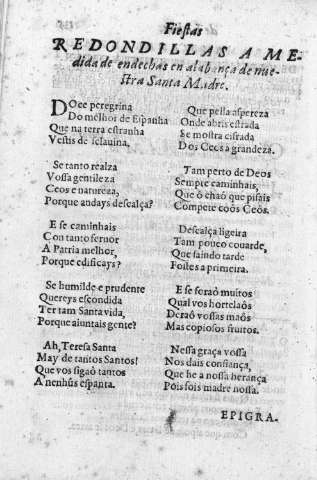 Fiestas
REDONDILLAS A ME-
dida de endechas en alabança de nue-
stra Santa Madre.
DOce peregrina
Do melhor de Espanha
Que na terra estranha
Vestis de sclauina.
Se tanto realza
Vossa gentileza
Ceos e natureza,
Porque andays descalça?
E se caminhais
Con tanto feruor
A Patria melhor,
Porque edificays?
Se humilde e prudente
Quereys escondida
Ter tam Santa vida,
Porque aiuntais gente?
Ah, Teresa Santa
May de tantos Santos!
Que vos sigaõ tantos
A nenhũs espanta.
Que pella aspereza
Onde abris estrada
Se mostra cifrada
Dos Ceos a grandeza.
Tam perto de Deos
Sempre caminhais,
Que ó chaõ que pisais
Compete coõs Ceos.
Descalça ligeira
Tam pouco couarde,
Que saindo tarde
Fostes a primeira.
E se seraõ muitos
Qual vos hortelaõs
Deraõ vossas maõs
Mas copiosos fruitos.
Nessa graça vossa
Nos dais confiança,
Que he a nossa herança
Pois sois madre nossa.
EPIGRA-